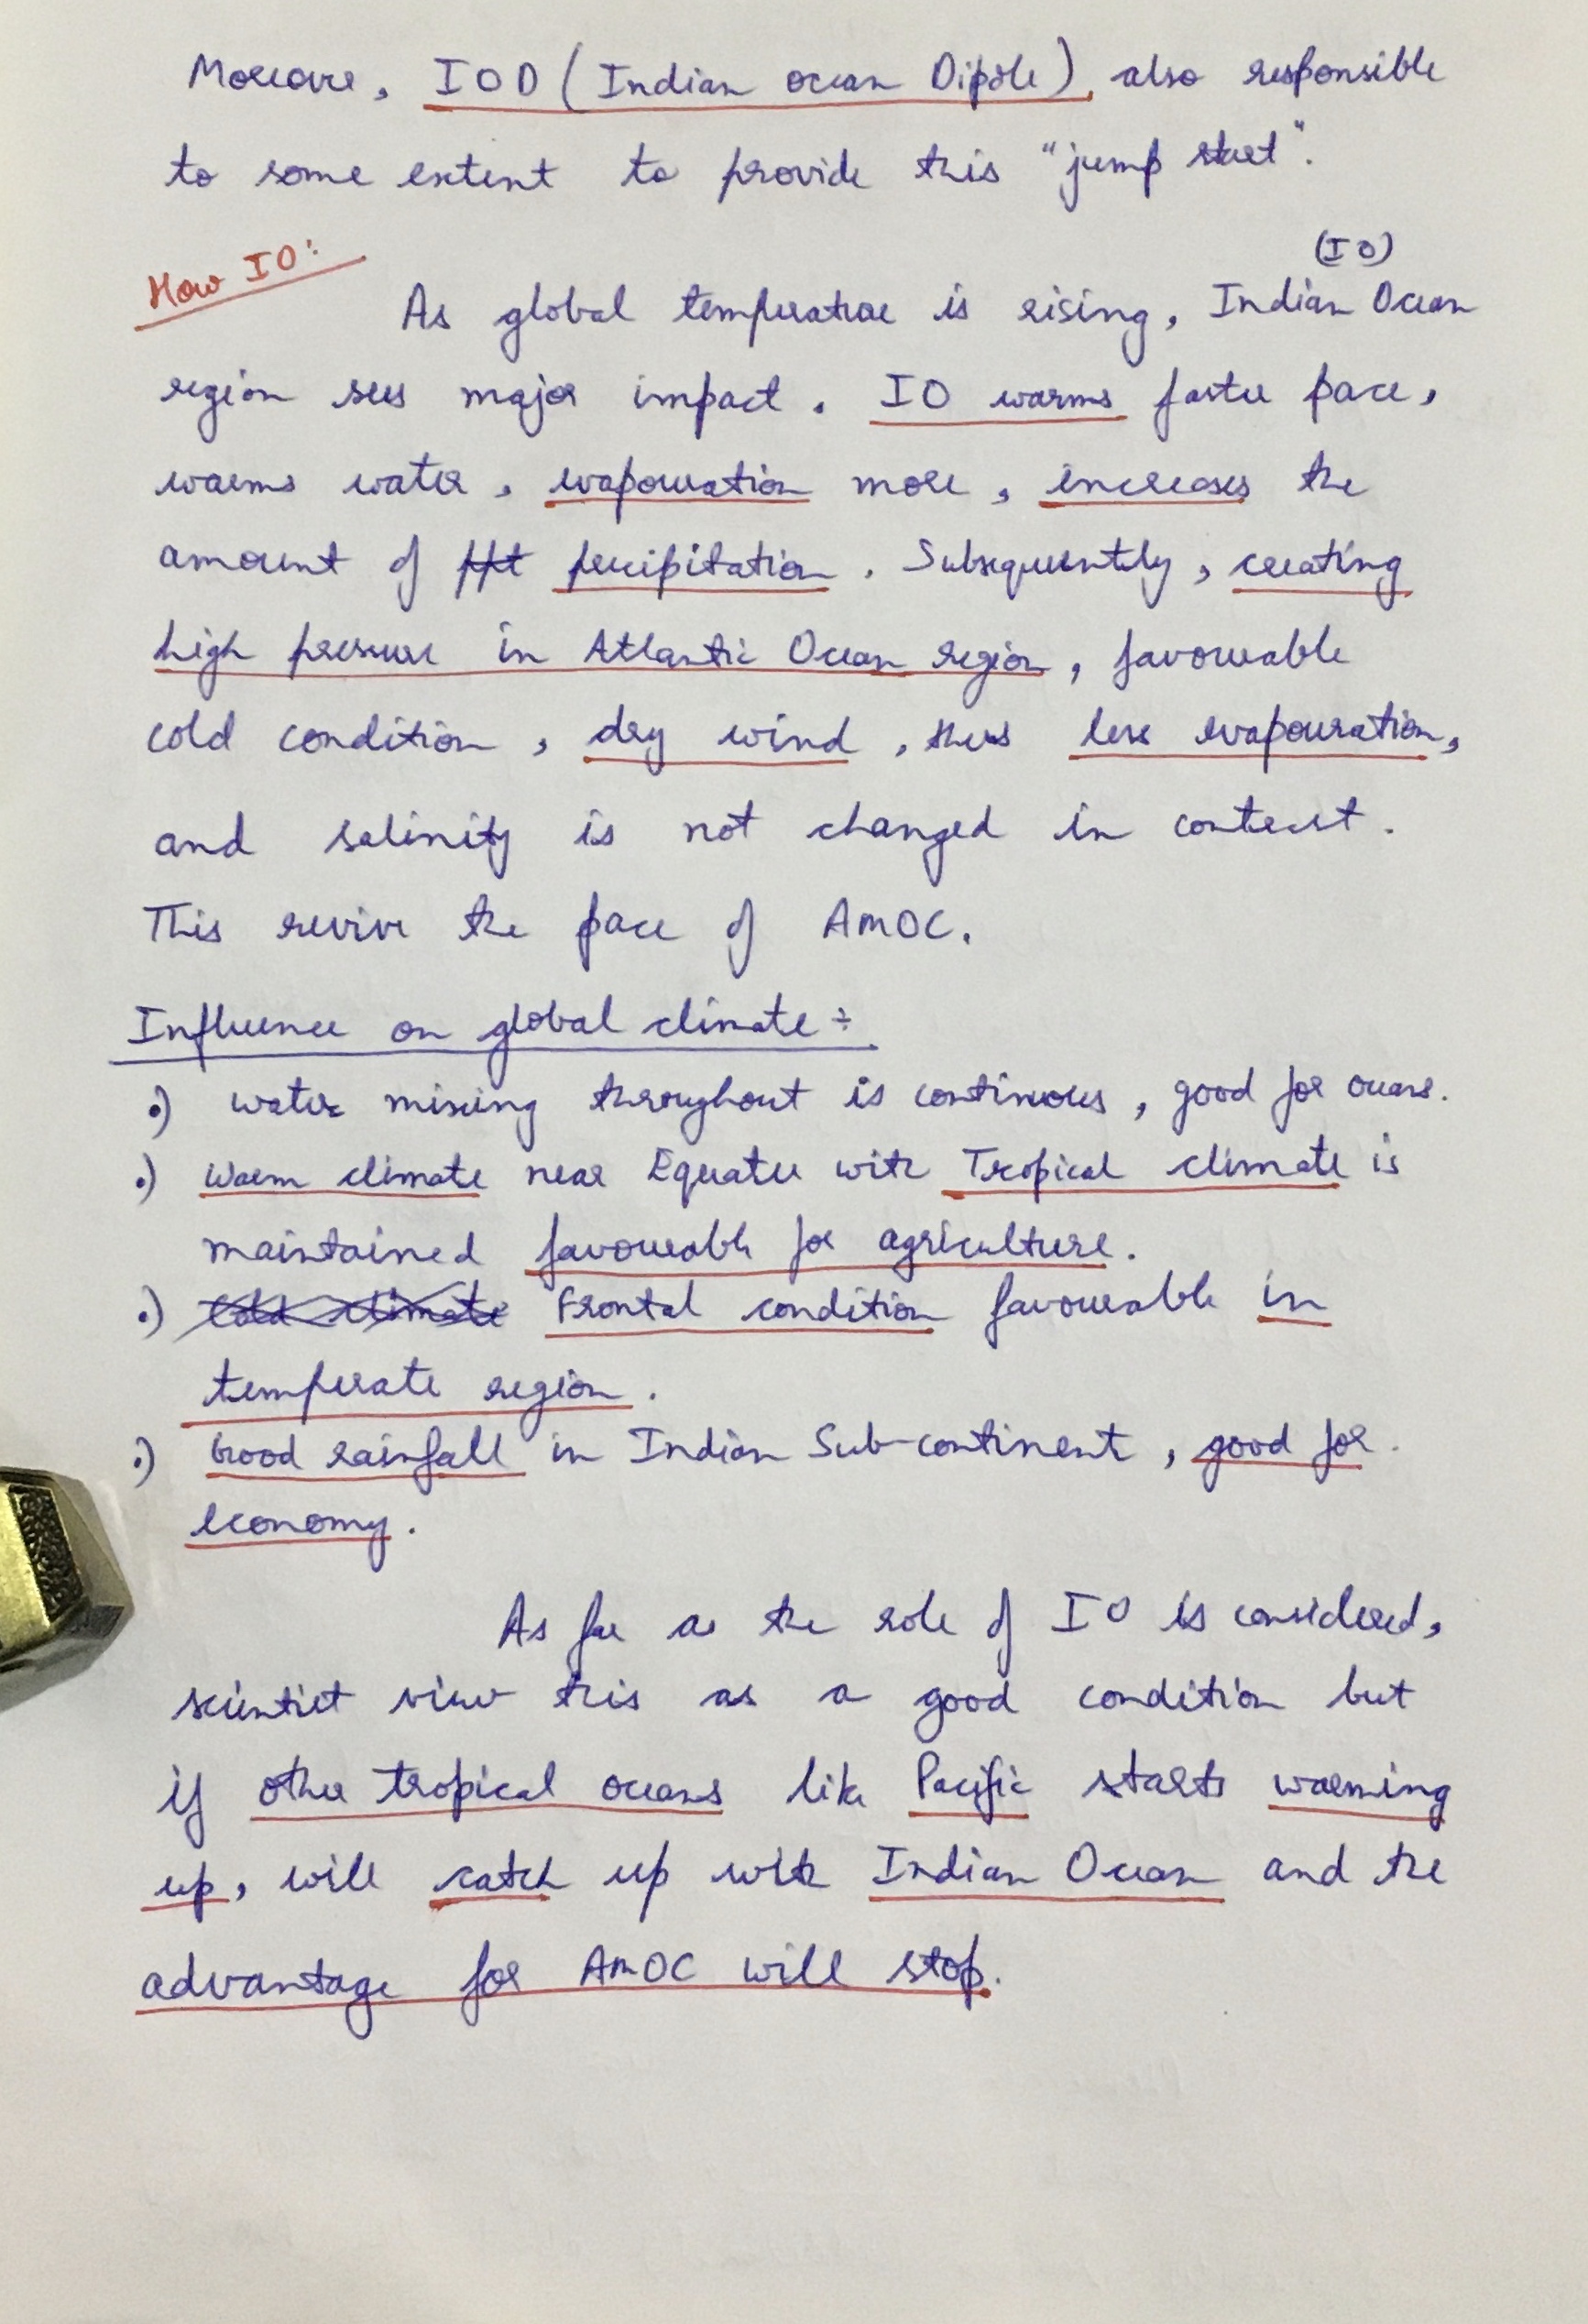 Moreover, IOD (Indian ocean Dipole), also responsible
to some extent to provide this "jump start".
(IO)
How IO:
As global temperature is rising, Indian Ocean
region sees major impact. IO warms faster pace,
warms water, evapouration more, increases the
amount of ppt percipitation. Subsequently, creating
high pressure in Atlantic Ocean region, favourable
cold condition, dry wind, thus less evapouration,
and salinity is not changed in context.
This revive the pace of AMOC.
Influence on global climate ÷
•) water mixing throughout is continuous, good for oceans.
•) Warm climate near Equator with Tropical climate is
maintained favourable for agriculture.
•) Cold climate Frontal condition favourable in
temperate region.
•) Good rainfall in Indian Sub-continent, good for
economy.
As far as the role of IO is considered,
scientist view this as a good condition but
if other tropical oceans like Pacific starts warming
up, will catch up with Indian Ocean and the
advantage for AMOC will stop.